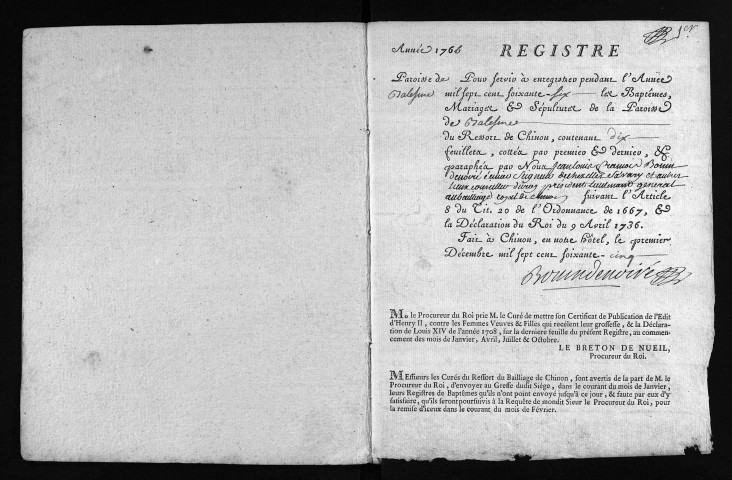 1er
Année 1766 REGISTRE
Paroisse de Pour servir à enregistrer pendant l'Année
Balesme mil sept cent soixante-six les Baptêmes,
Mariages & Sépultures de la Paroisse
de Balesme
du Ressort de Chinon, contenant dix
feuillets, cottés par premier & dernier, &
paraphés par Nous Jean Louis François Bouin
denoiré écuier Seigneur Savary et autres
lieux conseiller du roy president lieutenant general
au bailliage royal de chinon suivant l'Article
8 du Tit. 20 de l'Ordonnance de 1667, &
la Déclaration du Roi du 9 Avril 1736.
Fait à Chinon, en notre hôtel, le premier
Décembre mil sept cent soixante-cinq
Bouindenoiré
M. le Procureur du Roi prie M. le Curé de mettre son Certificat de Publication de l'Edit
d'Henry II, contre les Femmes Veuves & Filles qui recèlent leur grossesse, & la Déclara-
tion de Louis XIV de l'année 1708, sur la derniere feuille du présent Registre, au commen-
cement des mois de Janvier, Avril, Juillet & Octobre.
LE BRETON DE NUEIL,
Procureur du Roi.
MEssieurs les Curés du Ressort du Bailliage de Chinon, sont avertis de la part de M. le
Procureur du Roi, d'envoyer au Greffe dudit Siége, dans le courant du mois de Janvier,
leurs Registres de Baptêmes qu'ils n'ont point envoyé jusqu'à ce jour, & faute par eux d'y
satisfaire, qu'ils seront poursuivis à la Requête de mondit Sieur le Procureur du Roi, pour
la remise d'iceux dans le courant du mois de Février.